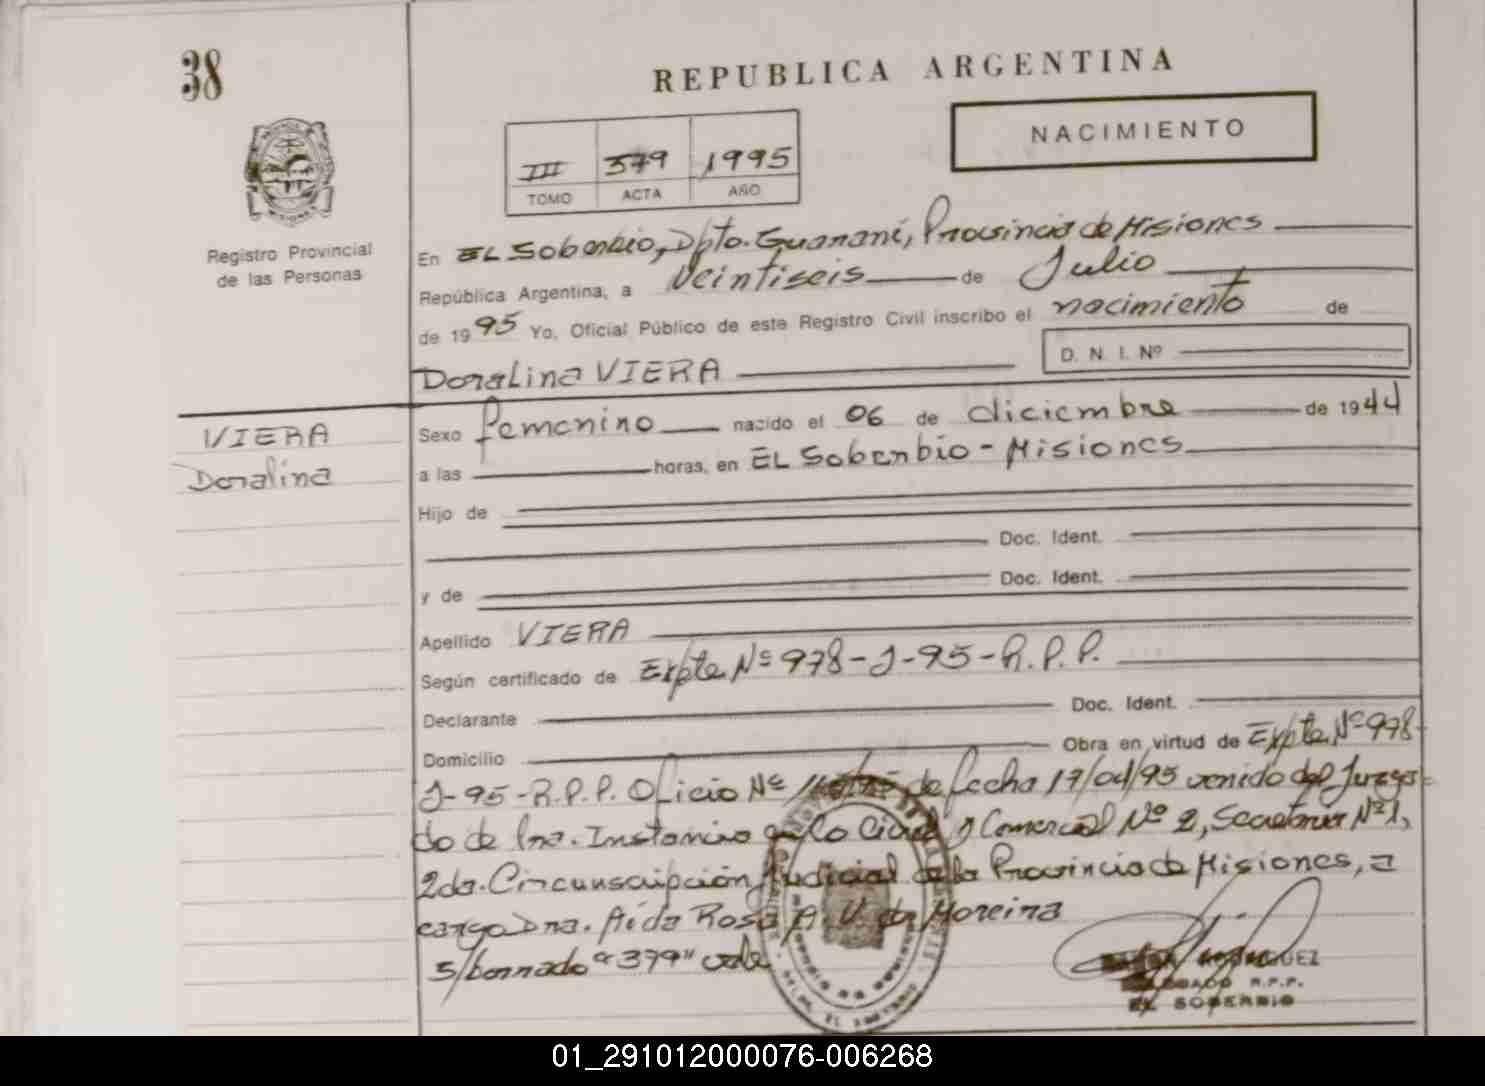 38
REPUBLICA ARGENTINA
NACIMIENTO
III 379 1995
TOMO ACTA AÑO
Registro Provincial
de las Personas
En EL Soberbio, Dpto. Guaraní, Provincia de Misiones
República Argentina, a Veintiseis de Julio
de 1995 Yo, Oficial Público de este Registro Civil inscribo el nacimiento de
D. N. I. Nº
Doralina VIERA
VIERA
Doralina
Sexo femenino nacido el 06 de diciembre de 1944
a las horas, en EL Soberbio - Misiones
Hijo de
Doc. Ident.
y de Doc. Ident.
Apellido VIERA
Según certificado de Expte Nº 978-J-95-R.P.P.
Declarante Doc. Ident.
Domicilio Obra en virtud de Expte Nº 978
J-95-R.P.P. Oficio Nº de fecha 17/04/95 venido del Juzga-
do de 1ra. Instancia en lo Civil y Comercial Nº 2, Secretaria Nº 1,
2da. Circunscripción Judicial de la Provincia de Misiones, a
cargo Dra. Aída Rosa A. V. de Moreira
S/borrado "379" vale
R.P.P.
EL SOBERBIO
01_291012000076-006268